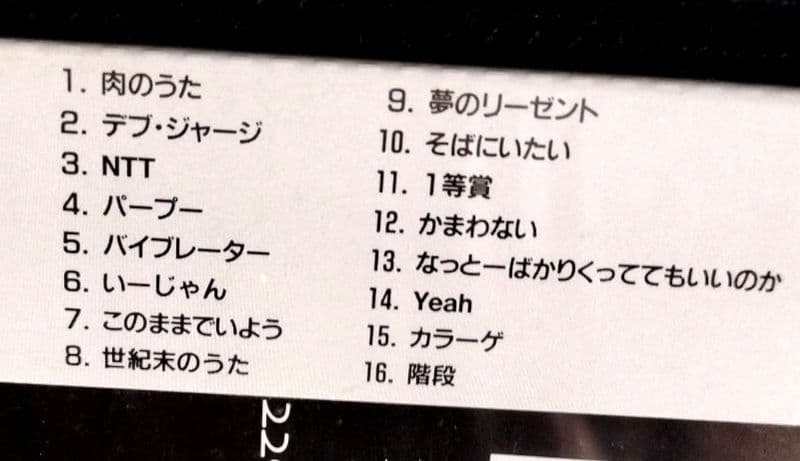 1. 肉のうた
2. デブ・ジャージ
3. NTT
4. パープー
5. バイブレーター
6. いーじゃん
7. このままでいよう
8. 世紀末のうた
9. 夢のリーゼント
10. そばにいたい
11. 1等賞
12. かまわない
13. なっとーばかりくっててもいいのか
14. Yeah
15. カラーゲ
16. 階段
22